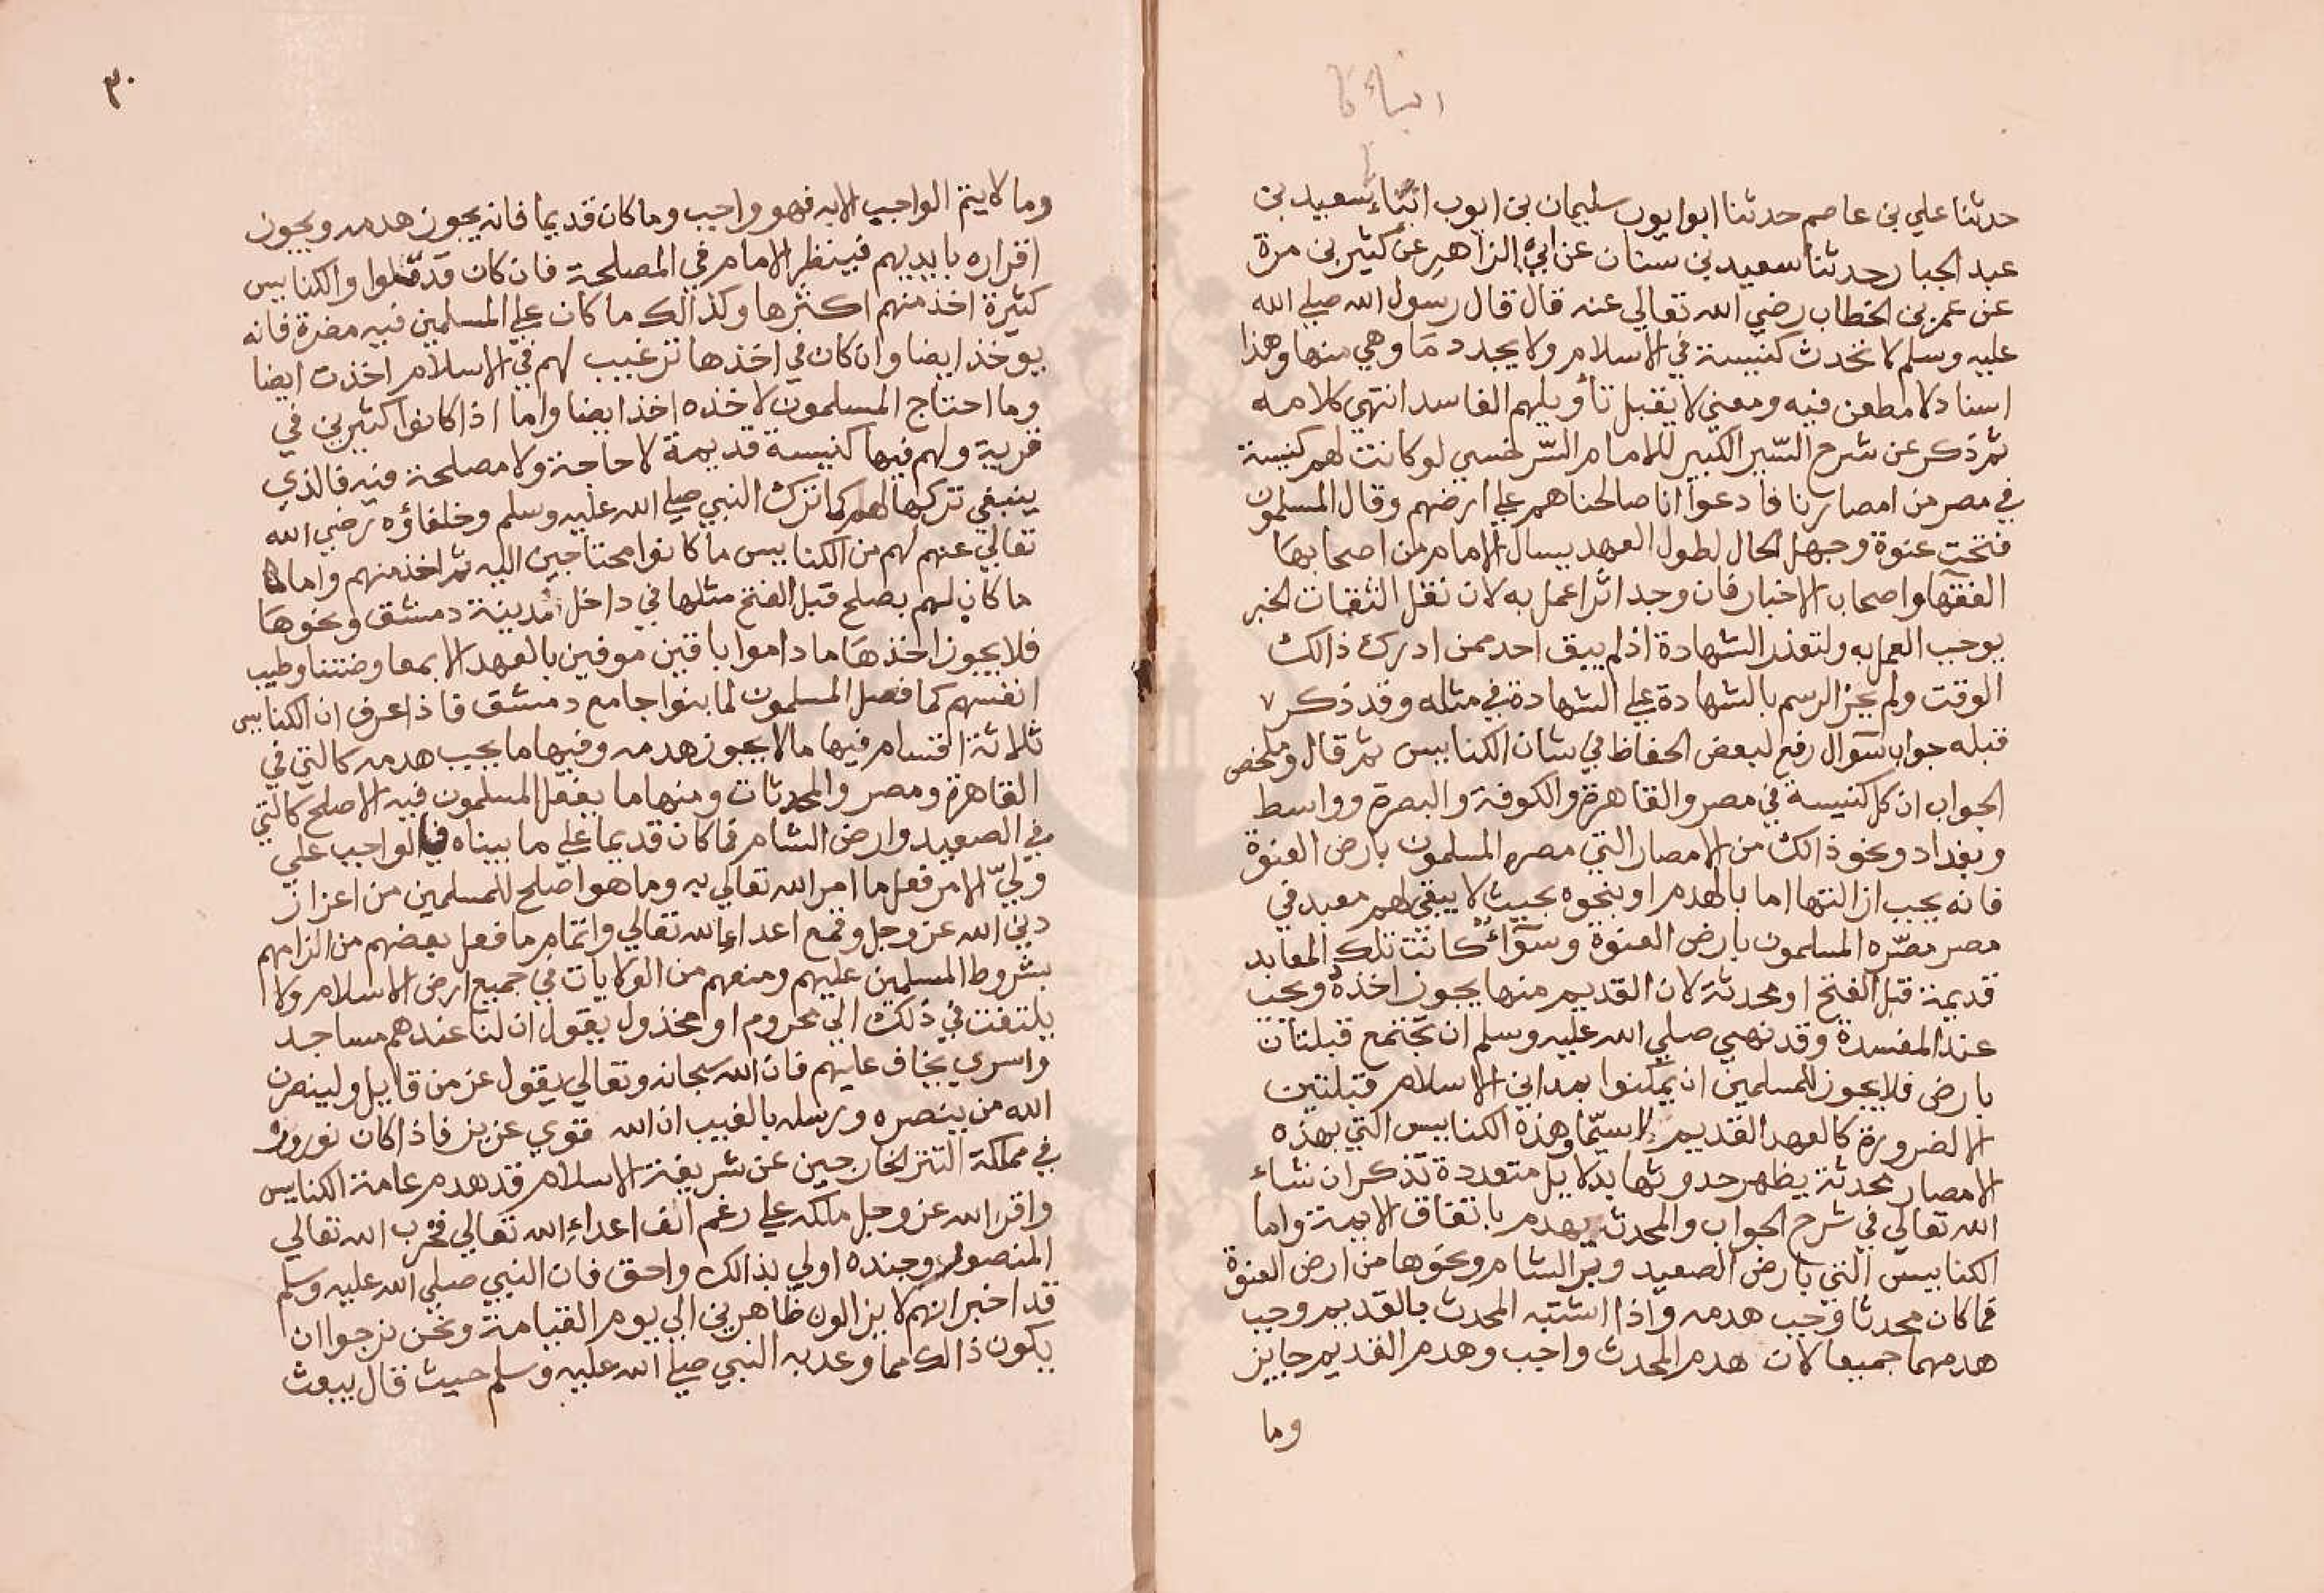 انباء نا
حدثنا علي بن عاصم حدثنا ابو ايوب سليمان بن ايوب انباء سعيد بن
عبد الجبار حدثنا سعيد بن سنان عن ابي الزاهر عن كثير بن مرة
عن عمر بن الخطاب رضي الله تعالي عنه قال قال رسول الله صلي الله
عليه وسلم لا تحدث كنيسة في الاسلام ولا يجدد ما وهي منها وهذا
اسناد لا مطعن فيه ومعني لا يقبل تأويلهم الفاسد انتهي كلامه
ثم ذكر عن شرح السّير الكبير للامام السّرخسي لو كانت لهم كنيسة
في مصر من امصارنا فادعوا انا صالحناهم علي ارضهم وقال المسلمون
فتحت عنوة وجهل الحال لطول العهد يسال الامام من اصحابها
الفقها واصحاب الاخبار فان وجد اثرا عمل به لان نقل الثقات الخبر
يوجب العمل به ولتعذر الشهادة اذ لم يبق احد ممن ادرك ذالك
الوقت ولم يجز الرسم بالشهادة علي الشهادة في مثله وقد ذكر ٧
قبله جواب سؤال رفع لبعض الحفاظ في شان الكنايس ثم قال وملخص
الجواب ان كل كنيسة في مصر والقاهرة والكوفة والبصرة وواسط
وبغداد ونحو ذالك من الامصار التي مصره المسلمون بارض العنوة
فانه يجب ازالتها اما بالهدم او بنحوه بحيث لا يبقي لهم معبد في
مصر مصّره المسلمون بارض العنوة وسوآء كانت تلك المعابد
قديمة قبل الفتح او محدثة لان القديم منها يجوز اخذه ويجب
عند المفسدة وقد نهي صلي الله عليه وسلم ان تجتمع قبلتان
بارض فلا يجوز للمسلمين ان يمكنوا بمداين الاسلام قبلتين
الا لضرورة كالعهد القديم لا سيّما وهذه الكنايس التي بهذه
الامصار محدثة يظهر حدوثها بدلايل متعددة تذكر ان شاء
الله تعالي في شرح الجواب والمحدثه يهدم باتفاق الايمة واما
الكنايس التي بارض الصعيد وبر الشام ونحوها من ارض العنوة
فما كان محدثا وجب هدمه واذا اشتبه المحدث بالقديم وجب
هدمهما جميعا لان هدم المحدث واجب وهدم القديم جايز
وما
٣٠
وما لا يتم الواجب الا به فهو واجب وما كان قديما فانه يجوز هدمه ويجوز
اقراره بايديهم فينظر الامام في المصلحة فان كان قد قلوا والكنايس
كثيرة اخذ منهم اكثرها وكذالك ما كان علي المسلمين فيه مضرة فانه
يوخذ ايضا وان كان في اخذها ترغيب لهم في الاسلام اخذت ايضا
وما احتاج المسلمون لاخذه اخذ ايضا واما اذا كانوا كثيرين في
قرية ولهم فيها كنيسة قديمة لا حاجة ولا مصلحة فيه فالذي
ينبغي تركها لهم كما ترك النبي صلي الله عليه وسلم وخلفاؤه رضي الله
تعالي عنهم لهم من الكنايس ما كانوا محتاجين اليه ثم اخذ منهم واما
ما كان لهم بصلح قبل الفتح مثلها في داخل مدينة دمشق ونحوها
فلا يجوز اخذها ما داموا باقين موفين بالعهد الا بمعاوضتنا وطيب
انفسهم كما فعل المسلمون لما بنوا جامع دمشق فاذا عرف ان الكنايس
ثلاثة اقسام فيها ما لا يجوز هدمه وفيها ما يجب هدمه كالتي في
القاهرة ومصر والمحدثات ومنها ما يفعل المسلمون فيه الاصلح كالتي
في الصعيد وارض الشام فما كان قديما علي ما بيناه فالواجب علي
وليّ الامر فعل ما امر الله تعالي به وما هو اصلح للمسلمين من اعزاز
دين الله عز وجل وقمع اعداء الله تعالي واتمام ما فعل بعضهم من الزامهم
بشروط المسلمين عليهم ومنعهم من الولايات في جميع ارض الاسلام ولا
يلتفت في ذلك الي محروم او مخذول يقول ان لنا عندهم مساجد
واسري يخاف عليهم فان الله سبحانه وتعالي يقول عز من قايل ولينصرن
الله من ينصره ورسله بالغيب ان الله قوي عزيز فاذا كان نوروز
في مملكة التتر الخارجين عن شريعة الاسلام قد هدم عامة الكنايس
واقر الله عز وجل ملكه علي رغم انف اعداء الله تعالي فحرب الله تعالي
المنصور وجنده اولي بذالك واحق فان النبي صلي الله عليه وسلم
قد اخبر انهم لا يزالون ظاهرين الي يوم القيامة ونحن نرجوا ان
يكون ذالك مما وعد به النبي صلي الله عليه وسلم حيث قال يبعث